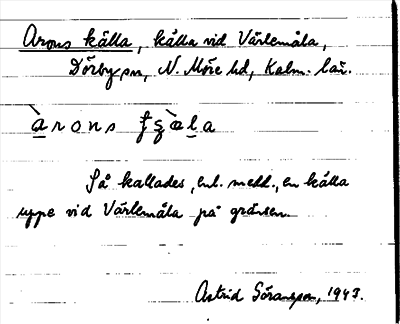 Arons källa, källa vid Värlemåla,
Dörby sn, N. Möre hd, Kalm. län.
Så kallades, enl. medd., en källa
uppe vid Värlemåla på gränsen.
Astrid Göransson, 1943.